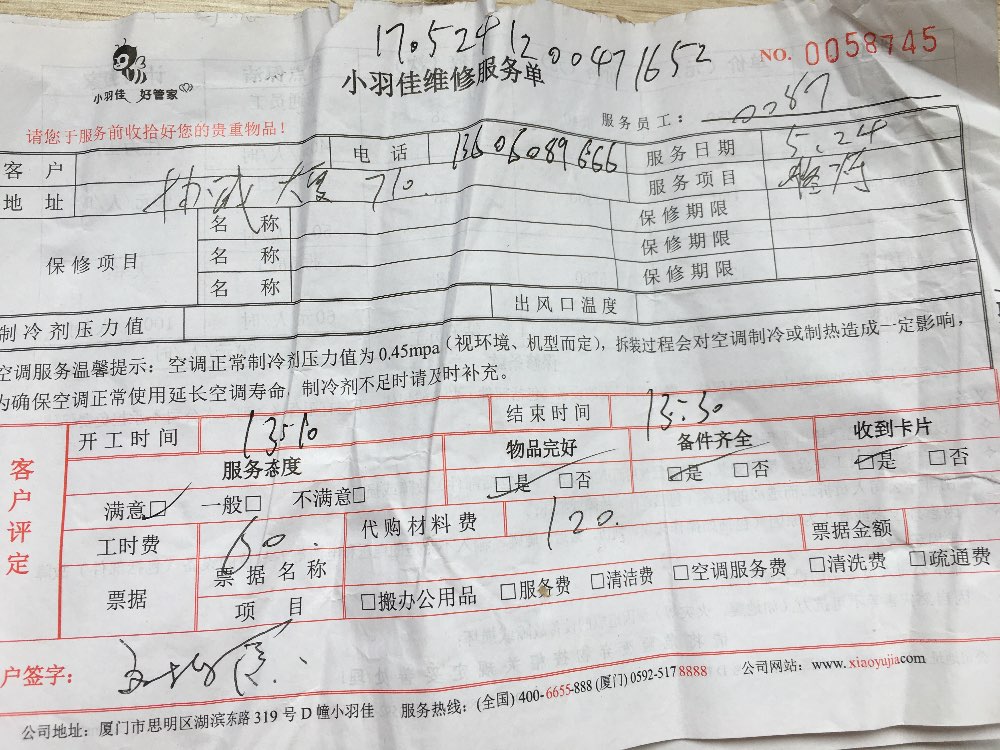 17.5241200471652
NO. 0058745
小羽佳 好管家
小羽佳维修服务单
请您于服务前收拾好您的贵重物品！
服务员工： 0087
客 户 电 话 13606089666 服务日期 5.24
地 址 大厦 710. 服务项目
保修项目 名 称 保修期限
名 称 保修期限
名 称 保修期限
制冷剂压力值 出风口温度
空调服务温馨提示：空调正常制冷剂压力值为0.45mpa（视环境、机型而定），拆装过程会对空调制冷或制热造成一定影响，
为确保空调正常使用延长空调寿命，制冷剂不足时请及时补充。
客户评定
开工时间 13:10 结束时间 13:30
服务态度 物品完好 备件齐全 收到卡片
满意☑ 一般□ 不满意□ ☑是 □否 ☑是 □否 ☑是 □否
工时费 60. 代购材料费 120. 票据金额
票据 票据名称
项 目 □搬办公用品 □服务费 □清洁费 □空调服务费 □清洗费 □疏通费
户签字：
公司地址：厦门市思明区湖滨东路319号D幢小羽佳 服务热线：(全国) 400-6655-888 (厦门) 0592-5178888 公司网站：www.xiaoyujia.com